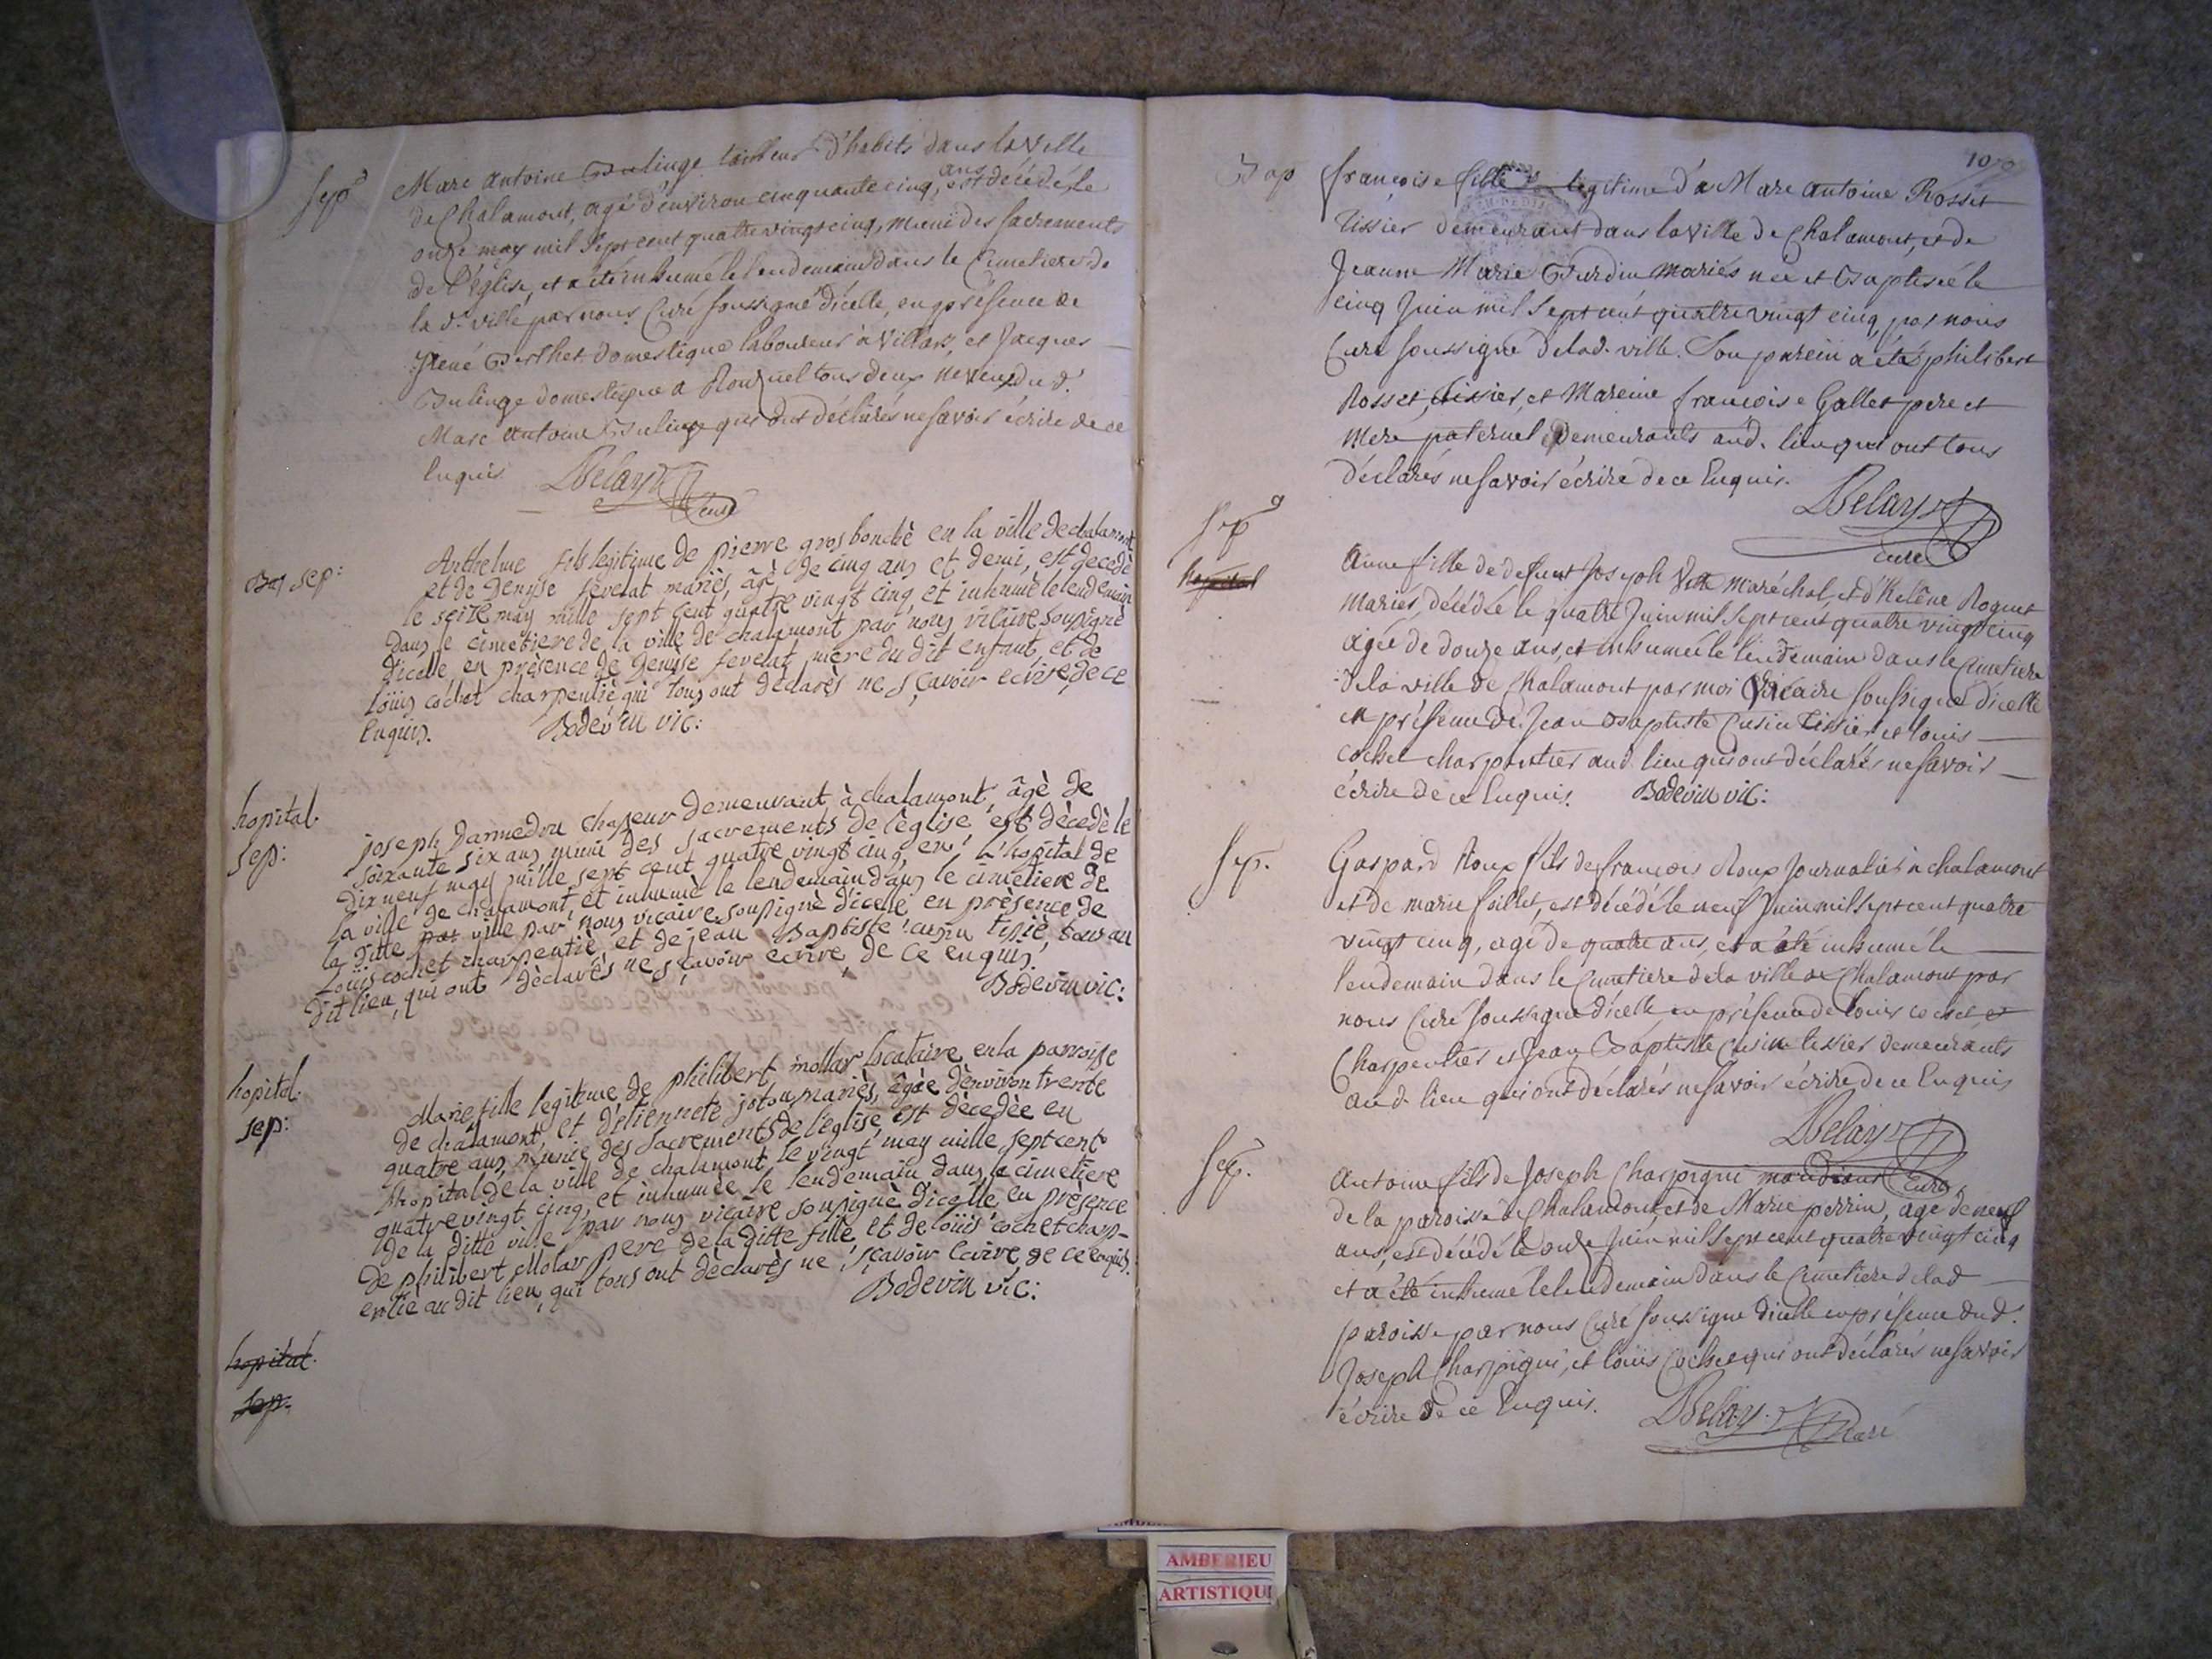 sep.
Marc Antoine Bulinge tailleur d'habits dans la Ville
de Chalamont, agé d'environ cinquante cinq ans est décédé le
onze may mil Sept cent quatre vingt cinq, muni des sacrements
de l'église, et a été inhumé le lendemain dans le Cimetiere de
la d. ville par nous Curé soussigné d'icelle, en présence de
René Berthet domestique laboureur à Villars, et Jacques
Bulinge domestique a tous deux neveux du d.
Marc Antoine Bulinge qui ont déclarés ne savoir écrire de ce
Enquis. Belay
Curé
sep:
Anthelme fils legitime de pierre gros bouchè en la ville de chalamont
et de Denyse fevelat mariès, âgè de cinq ans et demi, est decedè
le seize may mille sept cent quatre vingt cinq et inhumè le lendemain
dans le cimetiere de la ville de chalamont par nous vicaire soussignè
dicelle, en prèsence de Denyse fevelat mère du dit enfant, et de
loüis cochet charpentiè qui tous ont dèclarès ne sçavoir ecrire, de ce
Enquis. Bodevin vic:
hopital.
sep:
joseph Darmedru demeurant à chalamont, âgè de
soixante six ans, muni des sacrements de l'èglise est dècèdè le
dix neuf may mille sept cent quatre vingt cinq, en l'hopital de
la ville de chalamont, et inhumè le lendemain dans le cimetiere de
la ditte par ville par nous vicaire soussignè d'icelle en prèsence de
Loüis cochet charpentiè et de jean Baptiste cusin tissiè, tous au
dit lieu, qui ont dèclarès ne sçavoir ecrire, de ce enquis.
Bodevin vic:
hopital.
sep:
Marie fille legitime de philibert mollar locataire en la parroisse
de chalamont, et d'etiennete mariès, âgèe d'environ trente
quatre ans, munie des sacrements de l'église, est dècedèe en
l'hopital de la ville de chalamont le vingt may mille sept cent
quatre vingt cinq, et inhumèe le lendemain dans le cimetiere
de la ditte ville par nous vicaire soussignè d'icelle, en presence
de philibert Molar pere de la ditte fille, et de loüis cochet charp-
entiè au dit lieu, qui tous ont dèclarès ne sçavoir Ecrire, de ce enquis.
Bodevin vic:
hopital.
sep.
Bap
françoise fille legitime d'a Marc Antoine Rosset
tissier demeurant dans la Ville de Chalamont, et de
Jeanne Marie Burdin mariés née et Baptisée le
cinq Juin mil sept cent quatre vingt cinq, par nous
Curé soussigné de la d. ville. Son parein a été philibert
Rosset, tissier, et Mareine françoise Gallet pere et
Mere paternel demeurants aud. lieu qui ont tous
déclarés ne savoir écrire de ce Enquis.
Belay
Curé
sep
hopital
Anne fille de defunt Joseph maréchal et d'Helène Roquet
Mariés, décédée le quatre Juin mil sept cent quatre vingt cinq
agée de douze ans, et inhumée le lendemain dans le cimetiere
de la ville de Chalamont par moi Vicaire soussigné d'icelle
en présence de Jean Baptiste Cusin tissier et louis
cochet charpentier aud. lieu qui ont déclarés ne savoir
écrire de ce Enquis. Bodevin vic:
sep.
Gaspard Roux fils de françois Roux Journalier à chalamont
et de marie follet, est décédé le neuf Juin mil sept cent quatre
vingt cinq, agé de quatre ans, et a été inhumé le
lendemain dans le Cimetiere de la ville de Chalamont par
nous Curé soussigné d'icelle en présence de louis cochet
Charpentier et Jean Baptiste Cusin tissier demeurants
aud. lieu qui ont déclarés ne savoir écrire de ce Enquis
Belay
Curé
sep.
Antoine fils de Joseph Charpigni
de la paroisse de Chalamont, et de Marie perrin, agé de neuf
ans, est décédé le onze Juin mil sept cent quatre vingt cinq
et a été inhumé le lendemain dans le Cimetiere de la d
paroisse par nous Curé soussigné d'icelle en présence dud.
Joseph Charpigni, et louis Cochet qui ont déclarés ne savoir
écrire de ce Enquis. Belay
Curé
AMBERIEU
ARTISTIQU